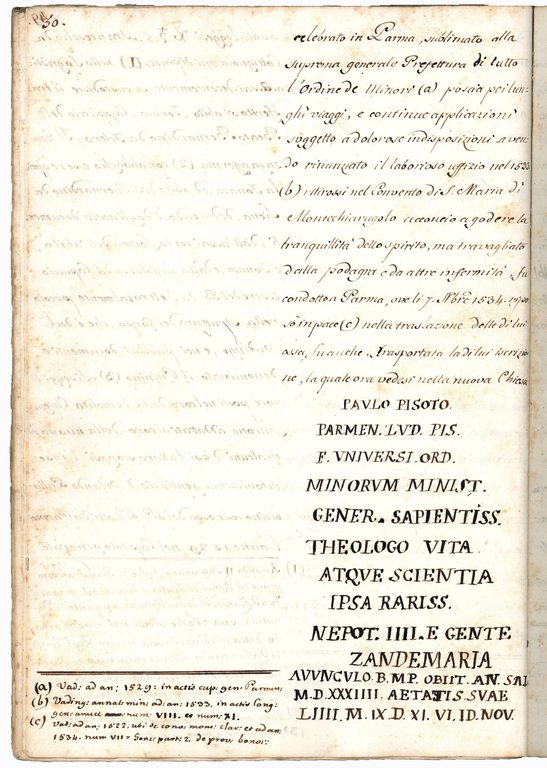 50.
celebrato in Parma, sublimato alla
suprema generale Prefettura di tutto
l'Ordine de Minori (a) poscia pei lun-
ghi viaggi, e continue applicazioni
soggetto a dolorose indisposizioni aven-
do rinunziato il laborioso uffizio nel 1533
(b) ritirossi nel Convento di S. Maria di
Montechiarugolo acconcio a godere la
tranquillità dello spirito, ma travagliato
dalla podagra e da altre infermità, fu
condotto a Parma, ove li 7. Nbre 1534. ripo
sò in pace (c) nella traslazione delle di lui
ossa, fu anche trasportata la di lui iscrizio
ne, la quale ora vedesi nella nuova Chiesa
PAVLO PISOTO.
PARMEN. LVD. PIS.
F. VNIVERSI. ORD.
MINORVM MINIST.
GENER. SAPIENTISS.
THEOLOGO VITA
ATQVE SCIENTIA
IPSA RARISS.
NEPOT. IIII. E GENTE
ZANDEMARIA
AVVNCVLO B. M. P. OBIIT. AN. SAL
M. D. XXXIIII. AETATIS. SVAE
LIIII. M. IX. D. XI. VI. ID. NOV.
(a) Vad: ad an: 1529: in actis cap: gen: Parmen:
(b) Vading: annal: min: ad an: 1533. in actis Cong:
gen: num: VIII. et num: XI.
(c) Vad: ad an: 1522. ubi de conv: mon: clar: et ad an:
1534. num VII= Gonz: part: 2. de prov: bonon: